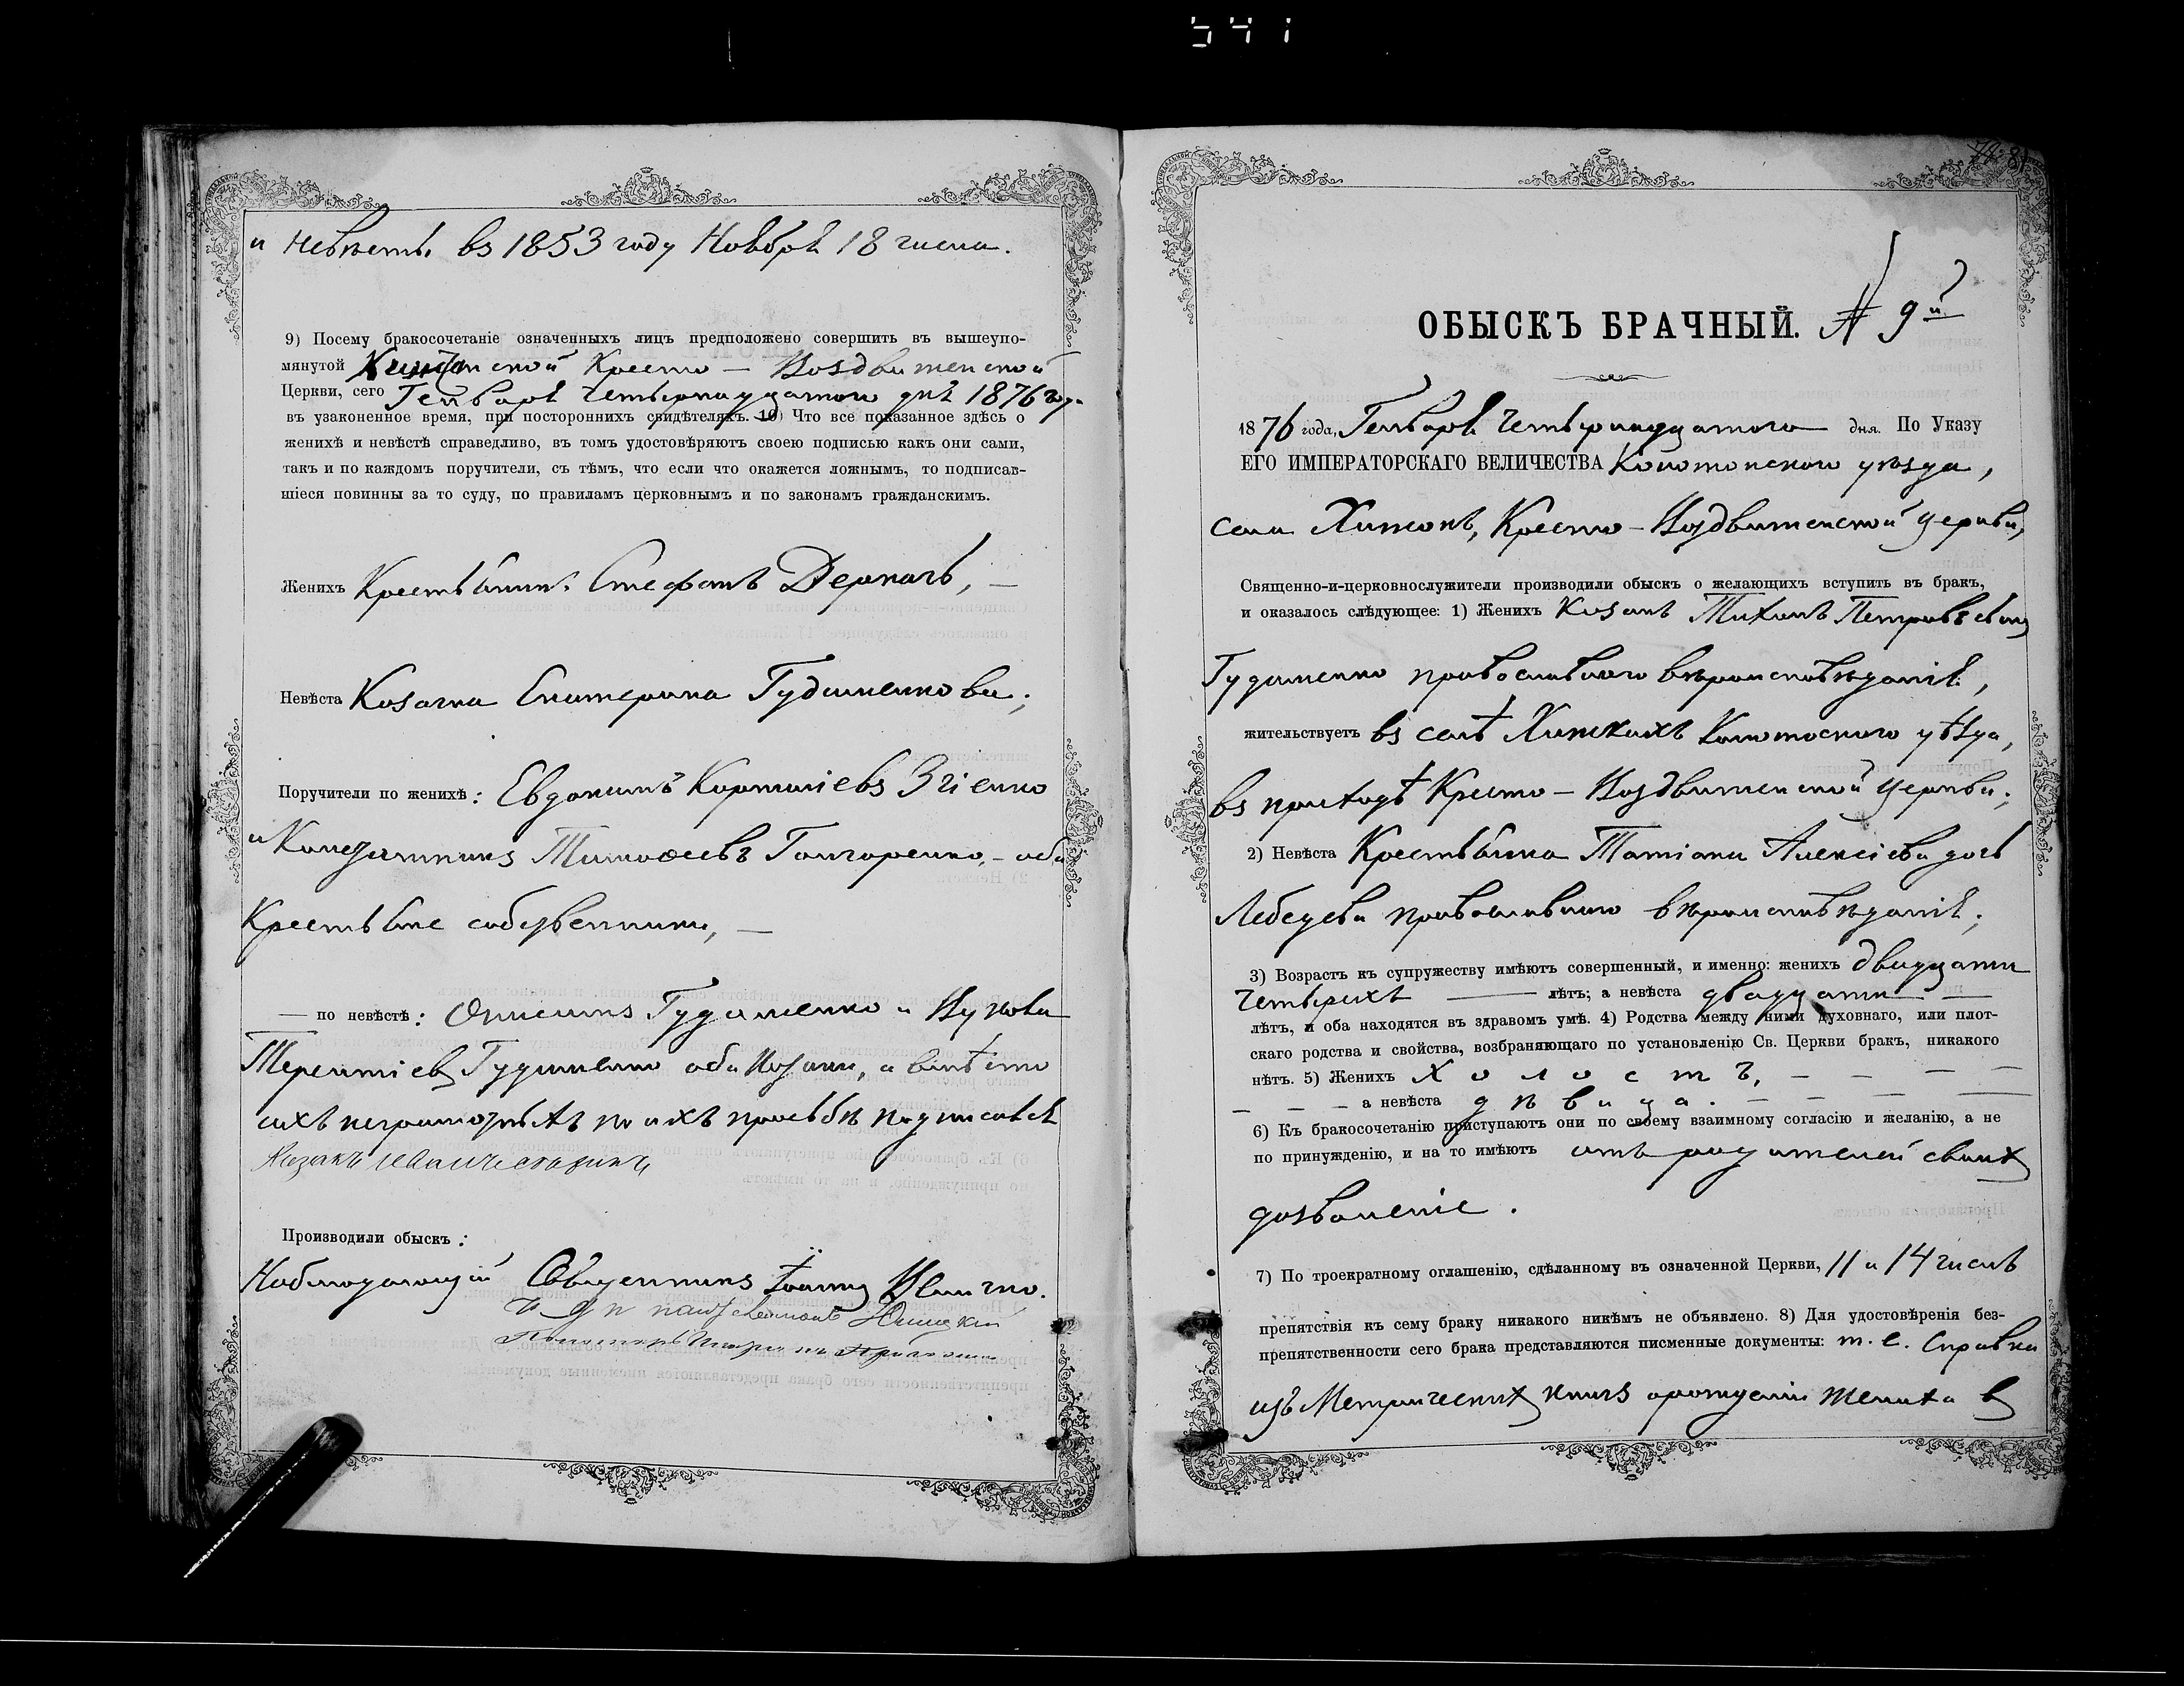 541
и невѣсты въ 1853 году Ноября 18 числа.
9) Посему бракосочетаніе означенныхъ лицъ предположено совершить въ вышеупо-
мянутой Кресто - Воздвиженской
Церкви, сего Генваря четырнадцатого дня 1876 года
въ узаконенное время, при постороннихъ свидѣтеляхъ. 10) Что все показанное здѣсь о
женихѣ и невѣстѣ справедливо, въ томъ удостовѣряютъ своею подписью какъ они сами,
такъ и по каждомъ поручители, съ тѣмъ, что если что окажется ложнымъ, то подписав-
шіеся повинны за то суду, по правиламъ церковнымъ и по законамъ гражданскимъ.
Женихъ Крестьянинъ Стефанъ Деркачъ, —
Невѣста Козачка Екатерина Гудименкова;
Поручители по женихѣ: Евдокимъ Згіенко
и Тимофеевъ Гончаренко, - оба
Крестьяне собственники, —
— по невѣстѣ: Гудименко и
Терентіевъ Гудименко оба Козаки, а вмѣсто
ихъ неграмотныхъ по ихъ просьбѣ подписался
Козакъ
Производили обыскъ:
Наблюдающій Священникъ Іоаннъ
ОБЫСКЪ БРАЧНЫЙ. № 9й
1876 года, Генваря четырнадцатого дня. По Указу
ЕГО ИМПЕРАТОРСКАГО ВЕЛИЧЕСТВА Конотопского уѣзда,
села Хижокъ, Кресто - Воздвиженской церкви,
Священно-и-церковнослужители производили обыскъ о желающихъ вступить въ бракъ,
и оказалось слѣдующее: 1) Женихъ Козакъ Тихонъ Петровъ сынъ
Гудименко православного вѣроисповѣданія,
жительствуетъ въ селѣ Хижкахъ уѣзда,
въ приходѣ Кресто - Воздвиженской церкви;
2) Невѣста Крестьянка Татіана Алексіева дочь
Лебедева православного вѣроисповѣданія;
3) Возрастъ къ супружеству имѣютъ совершенный, и именно: женихъ двадцати
четырехъ — лѣтъ; а невѣста двадцати —
лѣтъ, и оба находятся въ здравомъ умѣ. 4) Родства между ними духовнаго, или плот-
скаго родства и свойства, возбраняющаго по установленію Св. Церкви бракъ, никакого
нѣтъ. 5) Женихъ холостъ, — — — —
— — — а невѣста дѣвица. — — — —
6) Къ бракосочетанію приступаютъ они по своему взаимному согласію и желанію, а не
по принужденію, и на то имѣютъ отъ родителей своихъ
дозволеніе.
7) По троекратному оглашенію, сдѣланному въ означенной Церкви, 11 и 14 числъ
препятствія къ сему браку никакого никѣмъ не объявлено. 8) Для удостовѣренія без-
препятственности сего брака представляются писменные документы: т. е. справка
изъ Метрическихъ книгъ о рожденіи жениха въ